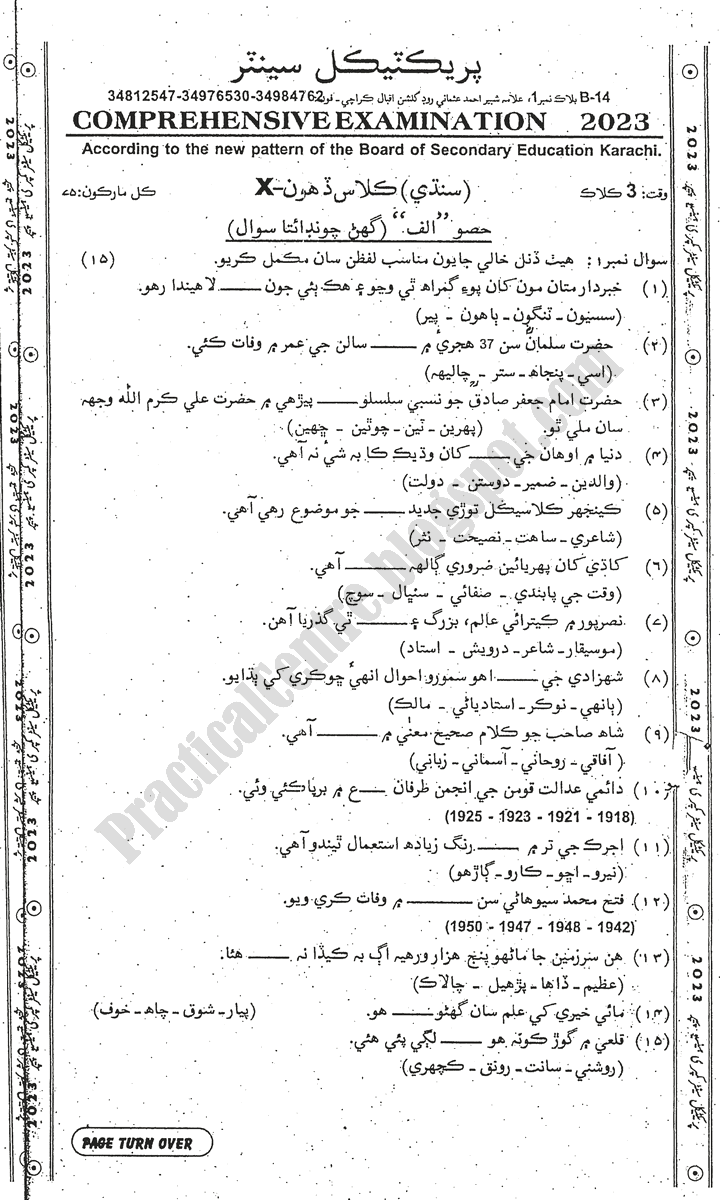 پريڪٽيڪل سينٽر
B-14 بلاڪ نمبر 1، علامہ شبير احمد عثماني روڊ گلشن اقبال ڪراچي۔ فون: 34984762-34976530-34812547
COMPREHENSIVE EXAMINATION 2023
According to the new pattern of the Board of Secondary Education Karachi.
وقت: 3 ڪلاڪ (سنڌي) ڪلاس ڏهون-X ڪل مارڪون: ۷۵
حصو "الف" (گهڻ چونڊائتا سوال)
سوال نمبر ۱: هيٺ ڏنل خالي جايون مناسب لفظن سان مڪمل ڪريو. (۱۵)
(۱) خبردار متان مون کان پوءِ گمراھ ٿي وڃو ۽ هڪ ٻئي جون ـــــــ لاهيندا رهو.
(سسيون ـ ٽنگون ـ ٻاهون ـ پير)
(۲) حضرت سلمانؓ سن 37 هجريءَ ۾ ـــــــ سالن جي عمر ۾ وفات ڪئي.
(اسي ـ پنجاھ ـ ستر ـ چاليهہ)
(۳) حضرت امام جعفر صادقؒ جو نسبي سلسلو ـــــــ پيڙهي ۾ حضرت علي ڪرم الله وجهہ
سان ملي ٿو. (پهرين ـ ٽين ـ چوٿين ـ ڇهين)
(۴) دنيا ۾ اوهان جي ـــــــ کان وڌيڪ ڪا بہ شيءِ نہ آهي.
(والدين ـ ضمير ـ دوستن ـ دولت)
(۵) ڪينجهر ڪلاسيڪل توڙي جديد ـــــــ جو موضوع رهي آهي.
(شاعري ـ ساهت ـ نصيحت ـ نثر)
(۶) کاڌي کان پهريائين ضروري ڳالهہ ـــــــ آهي.
(وقت جي پابندي ـ صفائي ـ سنڀال ـ سوچ)
(۷) نصرپور ۾ ڪيترائي عالم، بزرگ ۽ ـــــــ ٿي گذريا آهن.
(موسيقار ـ شاعر ـ درويش ـ استاد)
(۸) شهزادي جي ـــــــ اهو سمورو احوال انهيءَ ڇوڪري کي ٻڌايو.
(ٻانهي ـ نوڪر ـ استادياڻي ـ مالڪ)
(۹) شاھ صاحب جو ڪلام صحيح معنيٰ ۾ ـــــــ آهي.
(آفاقي ـ روحاني ـ آسماني ـ زباني)
(۱۰) دائمي عدالت قومن جي انجمن طرفان ـــــــ ع ۾ برپا ڪئي وئي.
(1918 - 1921 - 1923 - 1925)
(۱۱) اجرڪ جي تر ۾ ـــــــ رنگ زيادھ استعمال ٿيندو آهي.
(نيرو ـ اڇو ـ ڪارو ـ ڳاڙهو)
(۱۲) فتح محمد سيوهاڻي سن ـــــــ ۾ وفات ڪري ويو.
(1942 - 1948 - 1947 - 1950)
(۱۳) هن سرزمين جا ماڻهو پنج هزار ورهيہ اڳ بہ ڪيڏا نہ ـــــــ هئا.
(عظيم ـ ڏاها ـ پڙهيل ـ چالاڪ)
(۱۴) مائي خيري کي علم سان گهڻو ـــــــ هو. (پيار ـ شوق ـ چاھ ـ خوف)
(۱۵) قلعي ۾ گوڙ ڪونہ هو ـــــــ لڳي پئي هئي.
(روشني ـ سانت ـ رونق ـ ڪچهري)
PAGE TURN OVER
Practicalcentre.blogspot.com
2023
2023
2023
2023